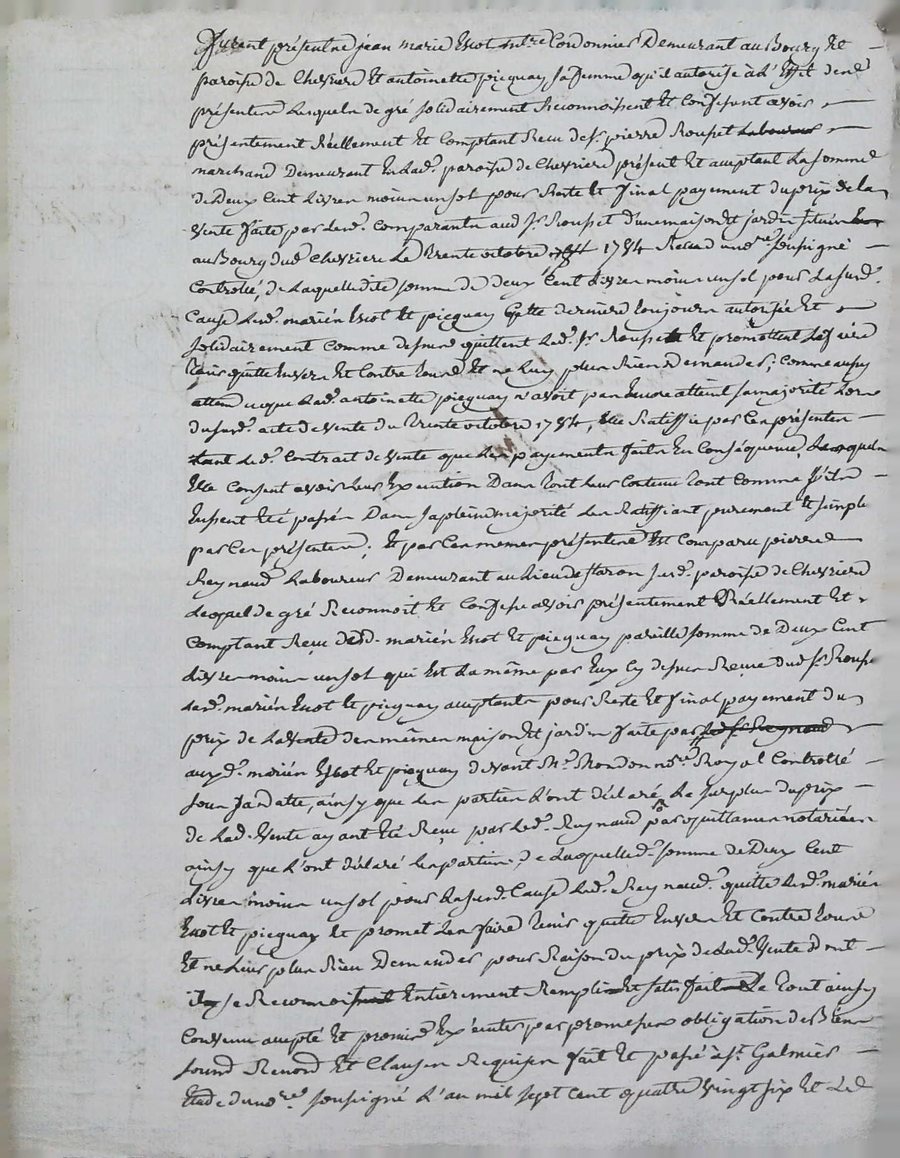 Furent présent ne jean marie Escot me Cordonnier Demeurant au Bourg Et
paroisse de Chevriere Et antoinette picquay sa femme quil autorise à L'Effet dene
présentene Lesqueln de gré solidairement Reconnoissent Et Confessent avoir
présentement Réellement Et Comptant Recu de sr. pierre Rousset Laboureur
marchand Demeurant En Lad. paroisse de Chevriere présent Et acceptant La somme
de Deux Cent Livren moin un sol pour Reste Et final payement du prix de la
vente faite par Lesd. Comparantn aud Sr. Rousset d'une maison Et jardin situén
au Bourg dud Chevriere Le Trente octobre 1784 Recu d no.re soussigné
Controllé, de Laquelle dite somme de deux Cent Livren moin un sol pour La susd.
Cause Lesd. marién Escot Et picquay Cette derniere toujours autorisée Et
solidairement Comme dessus quittent Led. sr Rousset Et promettent Le faire
Tenir quitte Enversn Et Contre toune Et ne Luy plun Rien Demander; Comme aussy
attendu que Lad. antoinette picquay n'avoit pan Encore atteint sa majorité Lorn
du susd. acte de vente du Trente octobre 1784, Elle Ratiffie par Cen présenten
Led. Contrat de vente que Len payementn faitn En Conséquence, Lesqueln
Elle Consent avoir Leur Execution Dann Tout Leur Contenu Tout Comme s'iln
Eussent Eté passén Dann sa pleine majorité Len Ratiffiant purement Et simple
par Cen présenten; Et par Cen memen présentene Est Comparu pierre
Reynaud Laboureur Demeurant au Lieu de flaron susd. paroisse de Chevriere
Lequel de gré Reconnoit Et Confesse avoir présentement Réellement Et
Comptant Reçu desd. marién Escot Et picquay pareille somme de Deux Cent
Livren moin un sol qui Est La même par Eux Cy dessun Recue dud sr. Rousset
Lesd. marién Escot Et picquay acceptantn pour Reste Et final payement du
prix de La vente den mêmen maison Et jardin faite par led sr Reynaud
auxd. marién Escot Et picquay devant Me. Rondon no.re Royal Controllé
soun sa datte, ainsy que Len partien L'ont déclaré Le surplun du prix
de Lad. vente ayant Eté Reçu par Led. Reynaud par quittancen notariéen
ainsy que L'ont déclaré Len partien, de Laquelle d. somme de Deux Cent
Livren moin un sol pour La susd. Cause Led. Reynaud. quitte Lesd. marién
Escot Et picquay Et promet Len faire Tenir quitte Enversn Et Contre toune
Et ne Leur plun Rien Demander pour Raison du prix de Lad. vente dont
il se Reconnoit Entierement Rempli Et satisfait Le Tout ainsy
Convenu accepté Et promin Exécuter par promessen obligation de Bienn
soumn Renond Et Clausen Requisen fait Et passé à st. Galmier
Etude du no.re soussigné L'an mil sept cent quatre vingt six Et Le